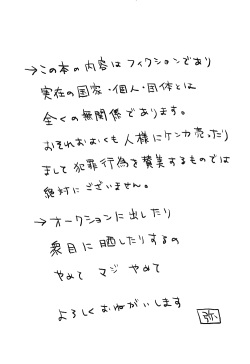 →この本の内容はフィクションであり
実在の国家・個人・団体とは
全くの無関係であります。
おそれおおくも人様にケンカ売ったり
まして犯罪行為を賛美するものでは
絶対にございません。
→オークションに出したり
衆目に晒したりするの
やめて マジ やめて
よろしくおねがいします
弥